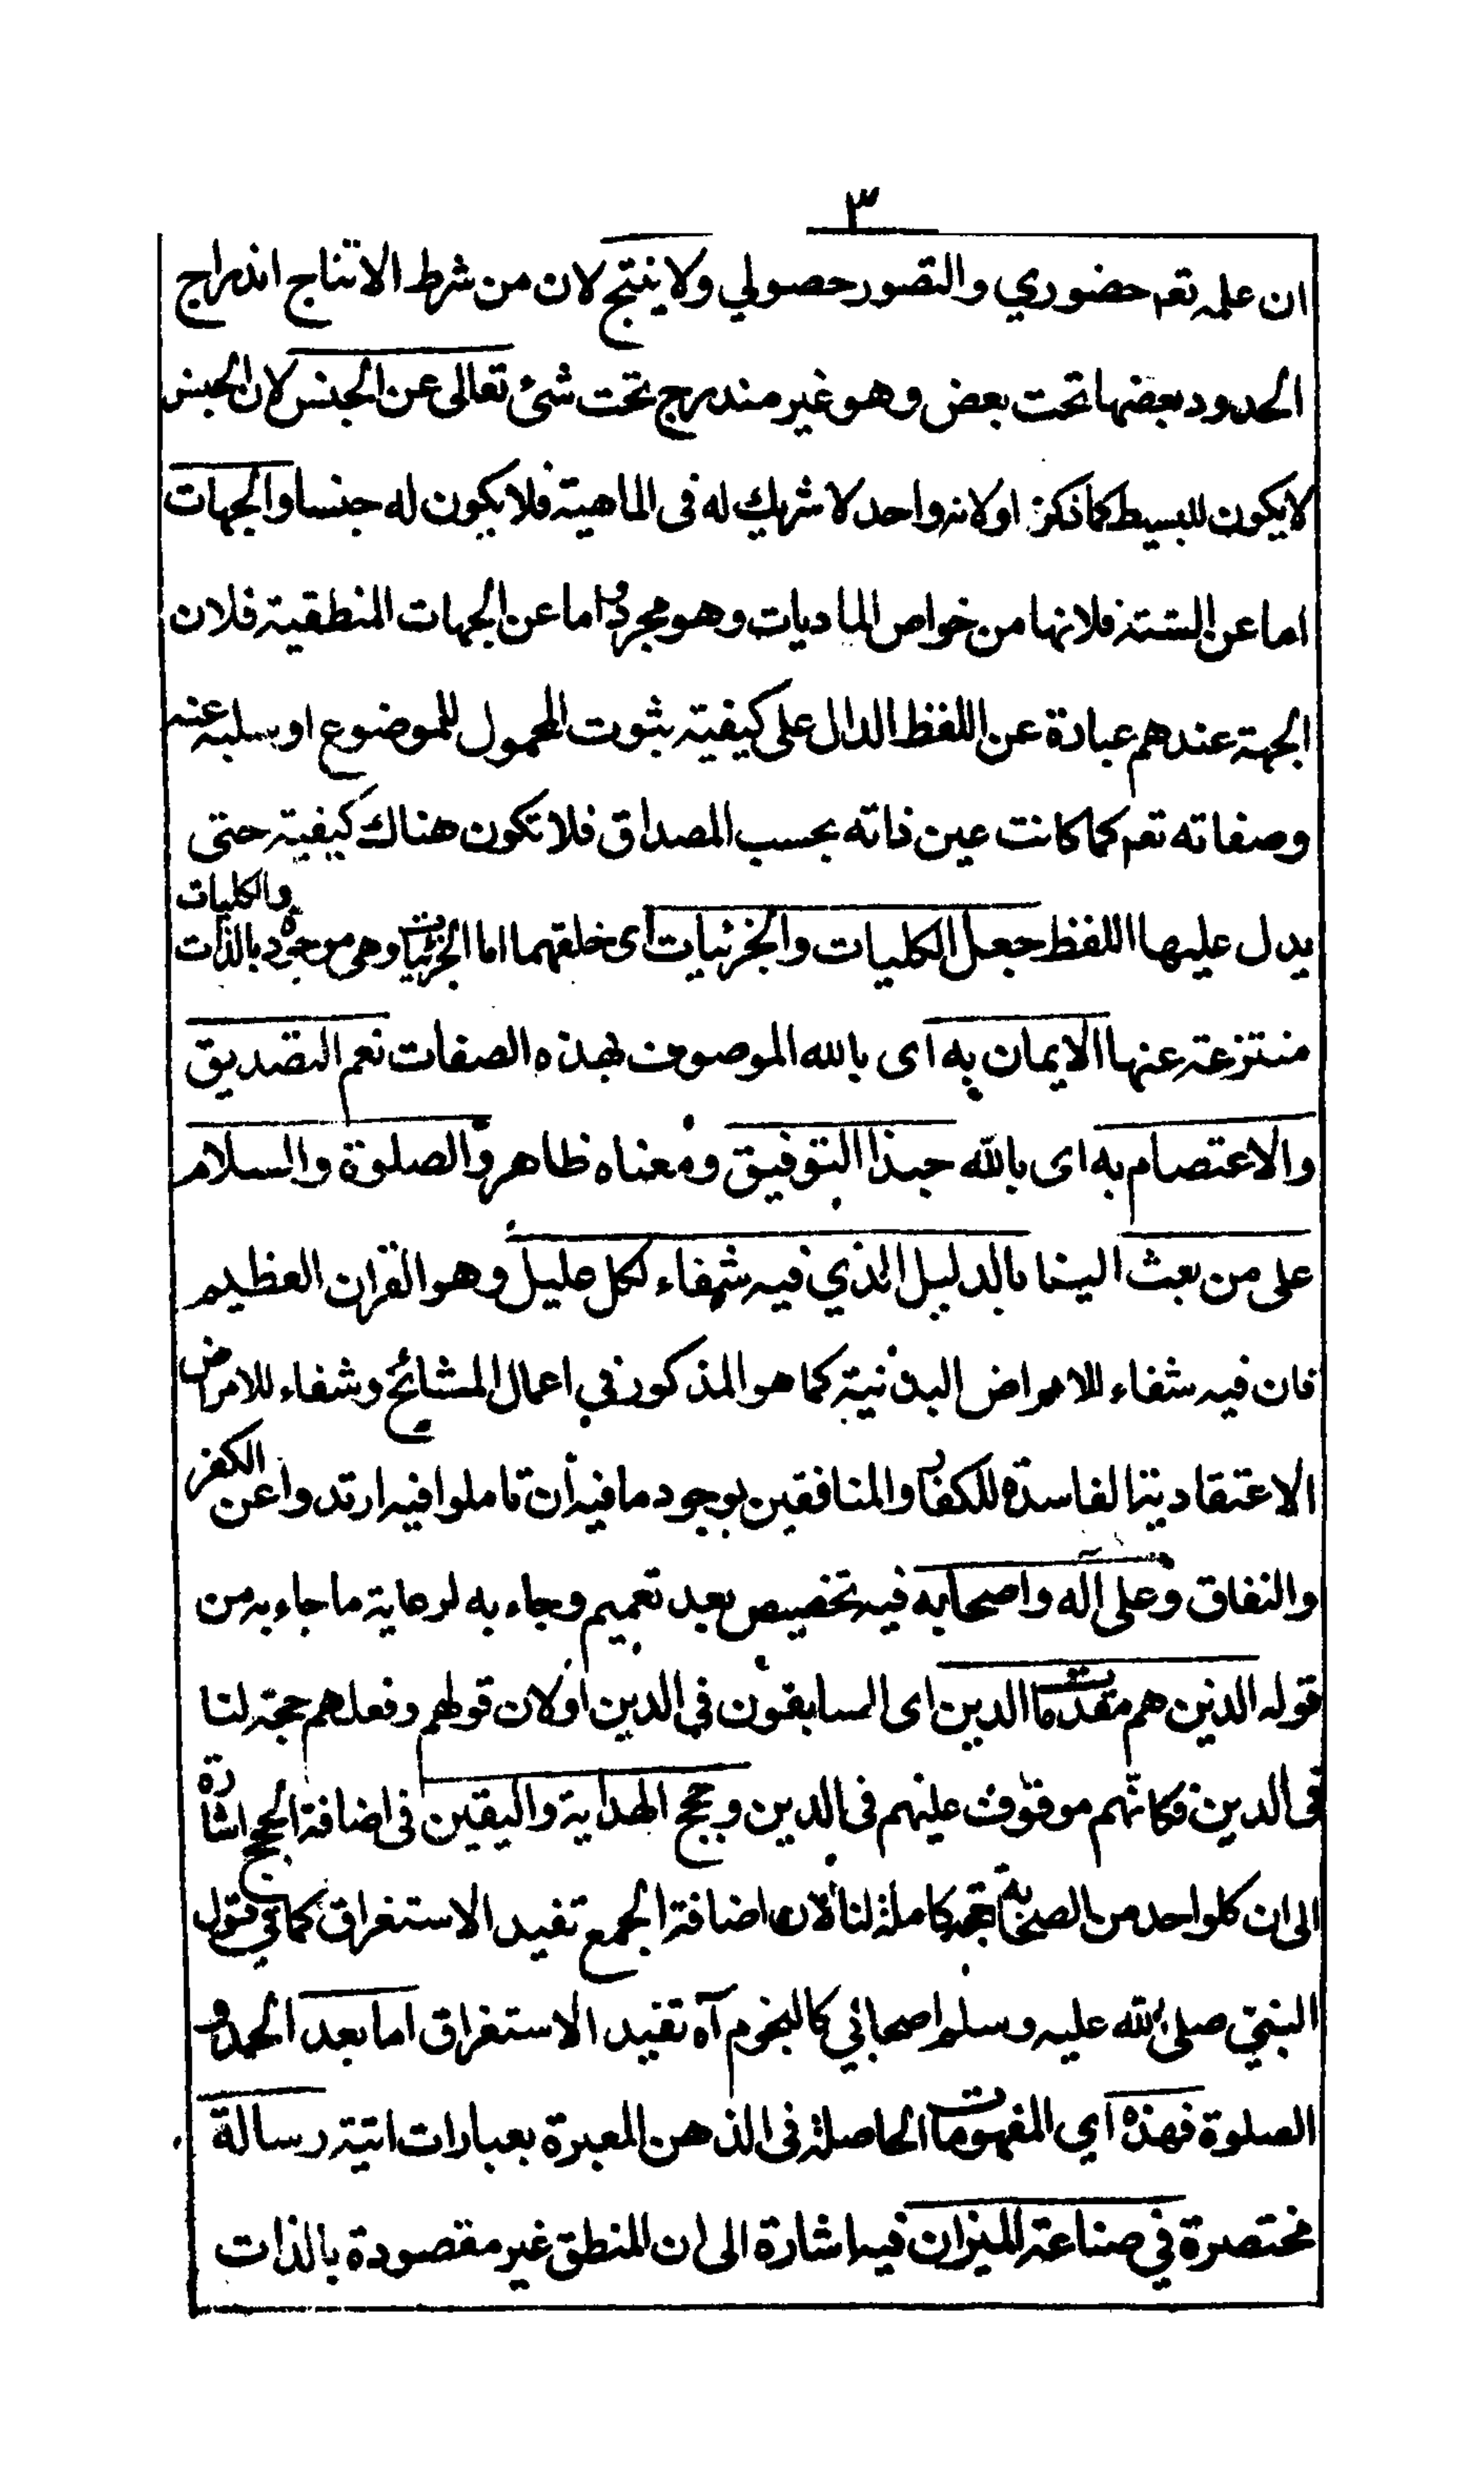 ٣
ان علمه تعم حضوري والتصور حصولي ولا ينتج لان من شرط الانتاج اندراج
الحدود بعضها تحت بعض وهو غير مندرج تحت شئ تعالى عن الجنس لان الجنس
لا يكون للبسيط كما ذكر اولانه واحد لا شريك له فى الماهية فلا يكون له جنسا والجهات
اما عن الستة فلانها من خواص الماديات وهو مجرد واما عن الجهات المنطقية فلان
الجهة عندهم عبارة عن اللفظ الدال على كيفية ثبوت المحمول للموضوع او سلبه عنه
وصفاته تعم كما كانت عين ذاته بحسب المصداق فلا تكون هناك كيفية حتى
يدل عليها اللفظ جعل الكليات والجزئيات اى خلقهما اما الجزئيات وهى موجودة بالذات والكليات
منتزعة عنها الايمان به اى بالله الموصوف بهذه الصفات نعم التصديق
والاعتصام به اى بالله حبذا التوفيق ومعناه ظاهر والصلوة والسلام
على من بعث الينا بالدليل الذي فيه شفاء لكل عليل وهو القران العظيم
فان فيه شفاء للامراض البدنية كما هو المذكور في اعمال المشائخ وشفاء للامراض
الاعتقادية الفاسدة للكفار والمنافقين بوجود ما فيه ان تاملوا فيه ارتدوا عن الكفر
والنفاق وعلى آله واصحابه فيه تخصيص بعد تعميم وجاء به لرعاية ما جاء به من
قوله الذين هم مقدمات الدين اى السابقون في الدين اولان قولهم وفعلهم حجة لنا
فى الدين فكانهم موقوف عليهم فى الدين وحجج الهداية واليقين فى اضافة الحجج اشارة
الى ان كلواحد من الصحابة حجة كاملة لنا لان اضافة الجمع تفيد الاستغراق كما في قول
النبي صلى الله عليه وسلم اصحابي كالنجوم آه تفيد الاستغراق اما بعد الحمد و
الصلوة فهذه اي المفهومات الحاصلة فى الذهن المعبرة بعبارات اتية رسالة
مختصرة في صناعة الميزان فيه اشارة الى ان المنطق غير مقصودة بالذات